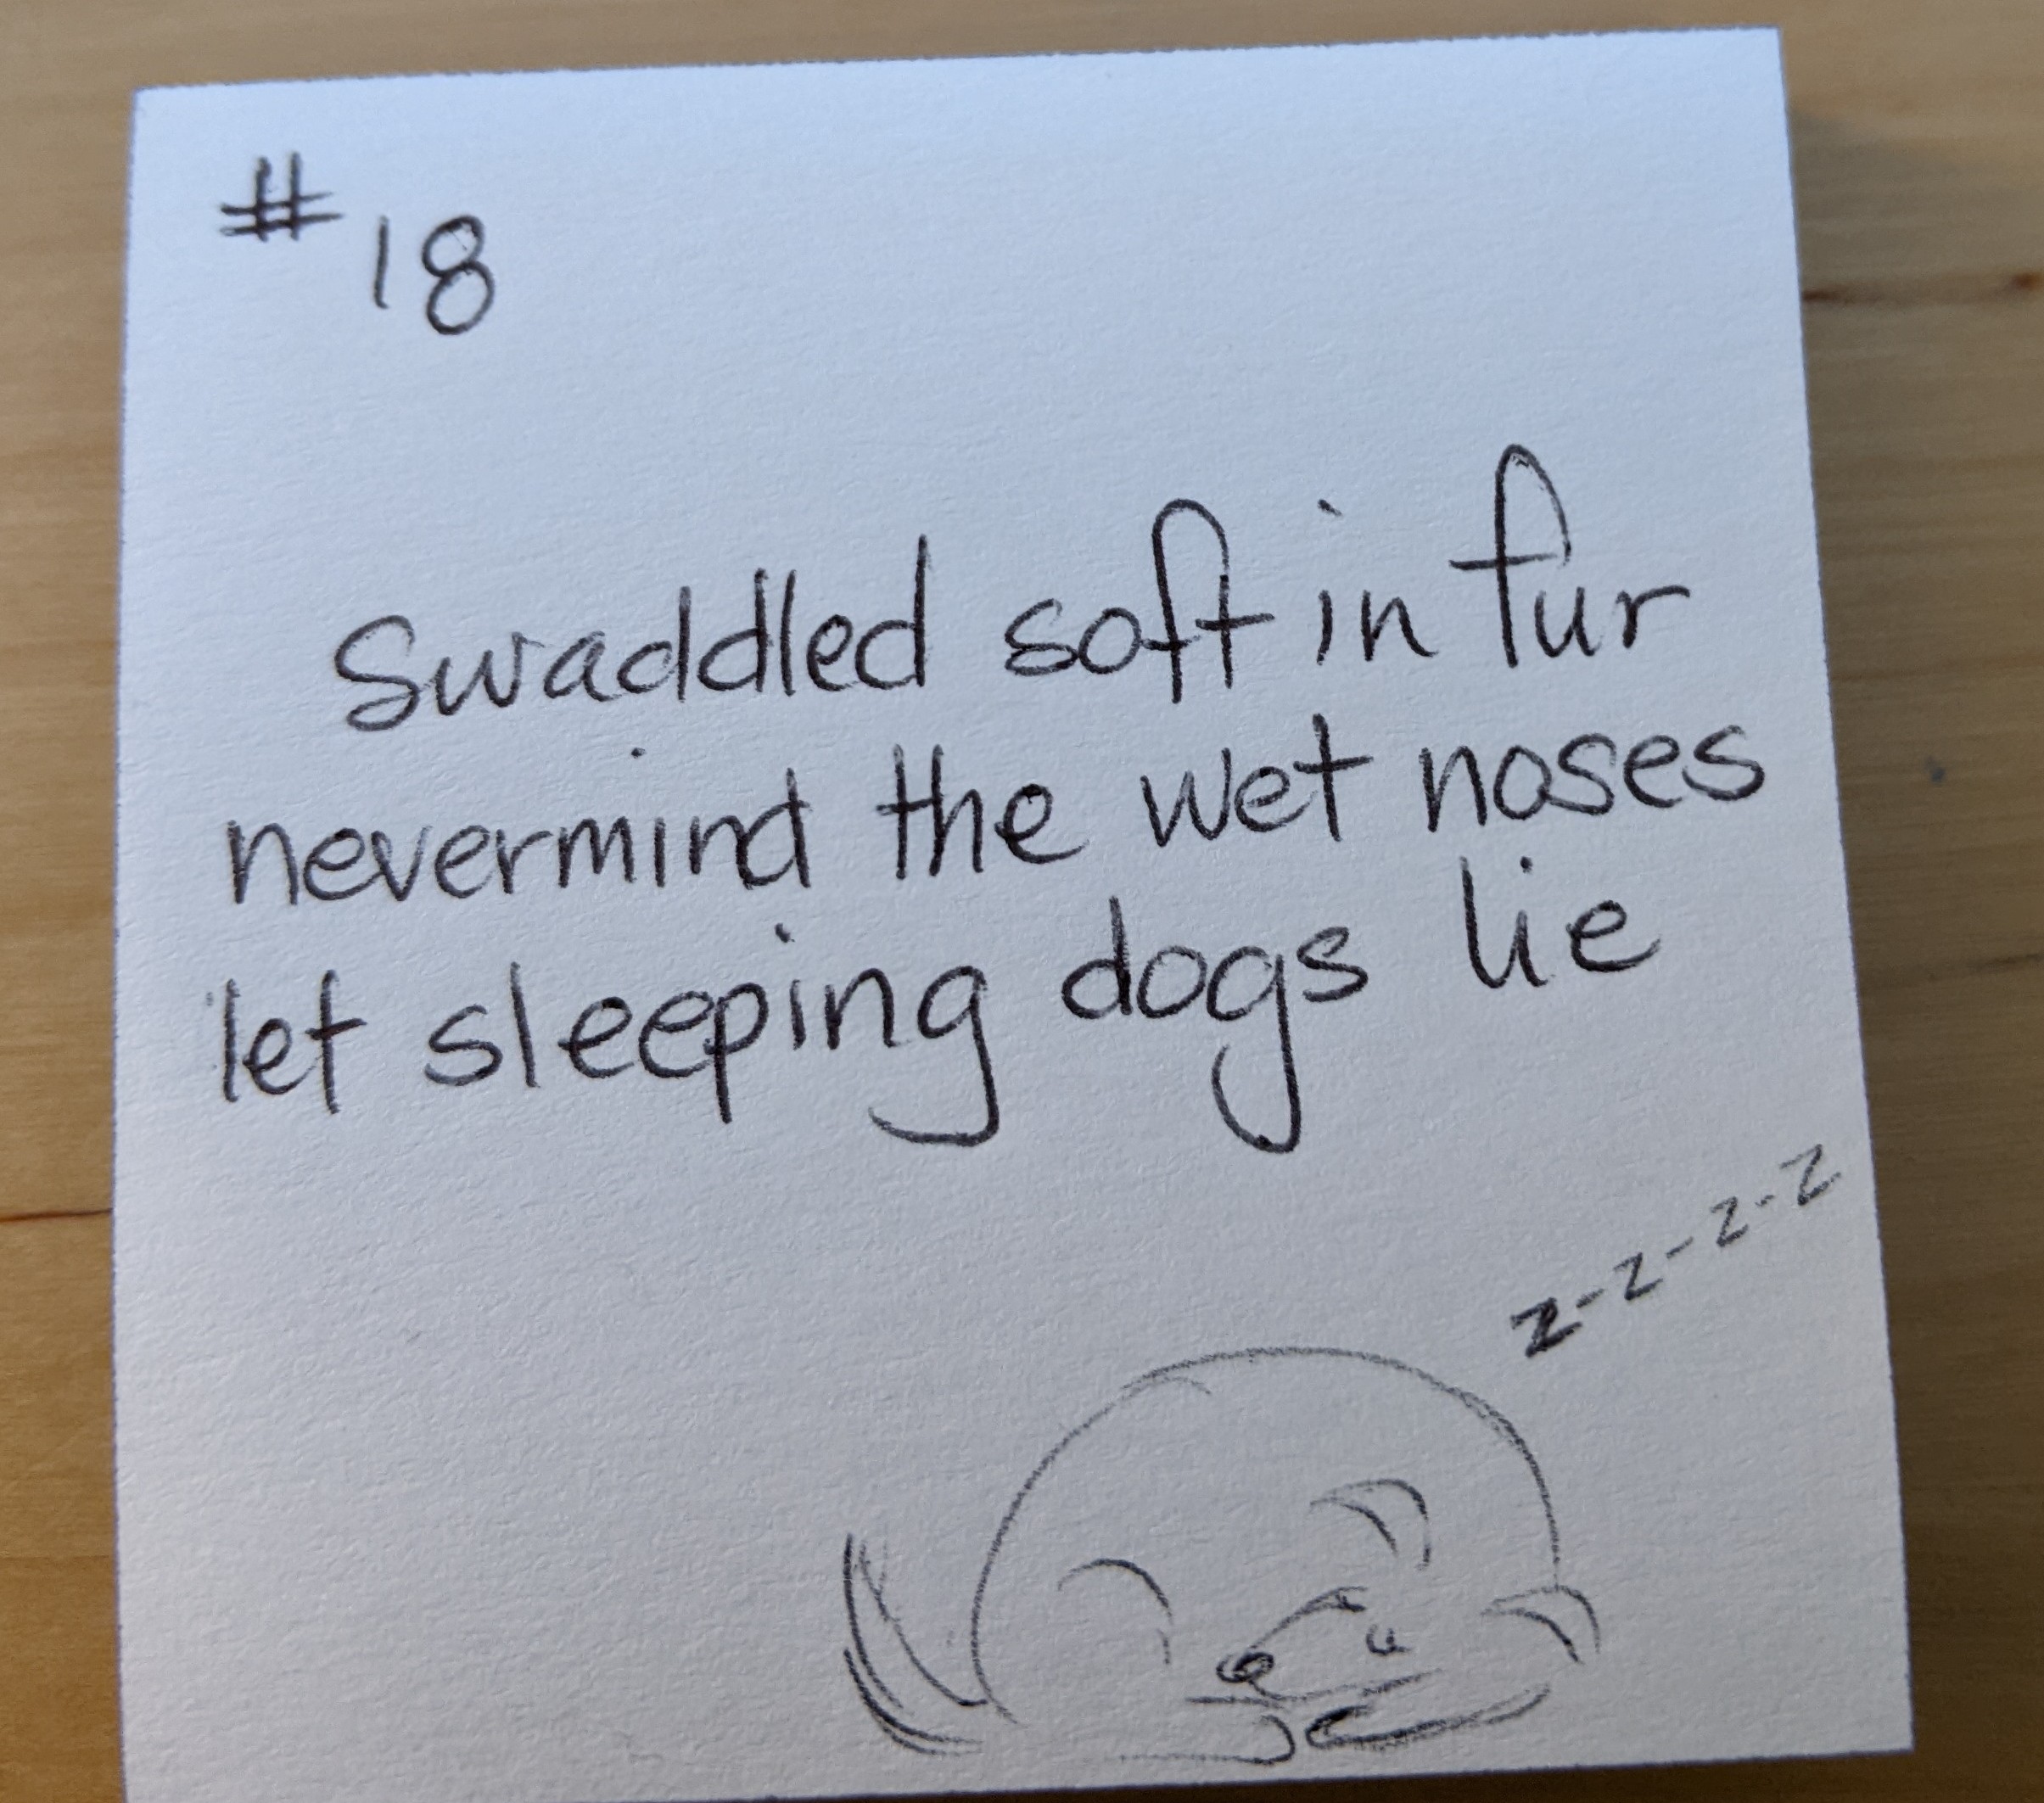 #18
Swaddled soft in fur
nevermind the wet noses
let sleeping dogs lie
z-z-z-z